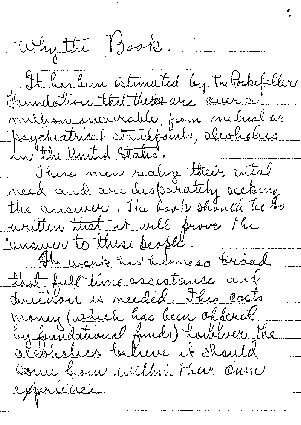 Why the Book.
It has been estimated by the Rockefeller
Foundation that there are over a
million incurable, from medical or
psychiatrist standpoints, alcoholics
in the United States.
These men realize their vital
need and are desparately seeking
the answer. The book should be so
written that it will prove the
answer to these people.
The work has become so broad
that full time assistance and
direction is needed. This costs
money (which has been offered
by foundational funds) however the
alcoholics believe it should
come from within their own
experience.